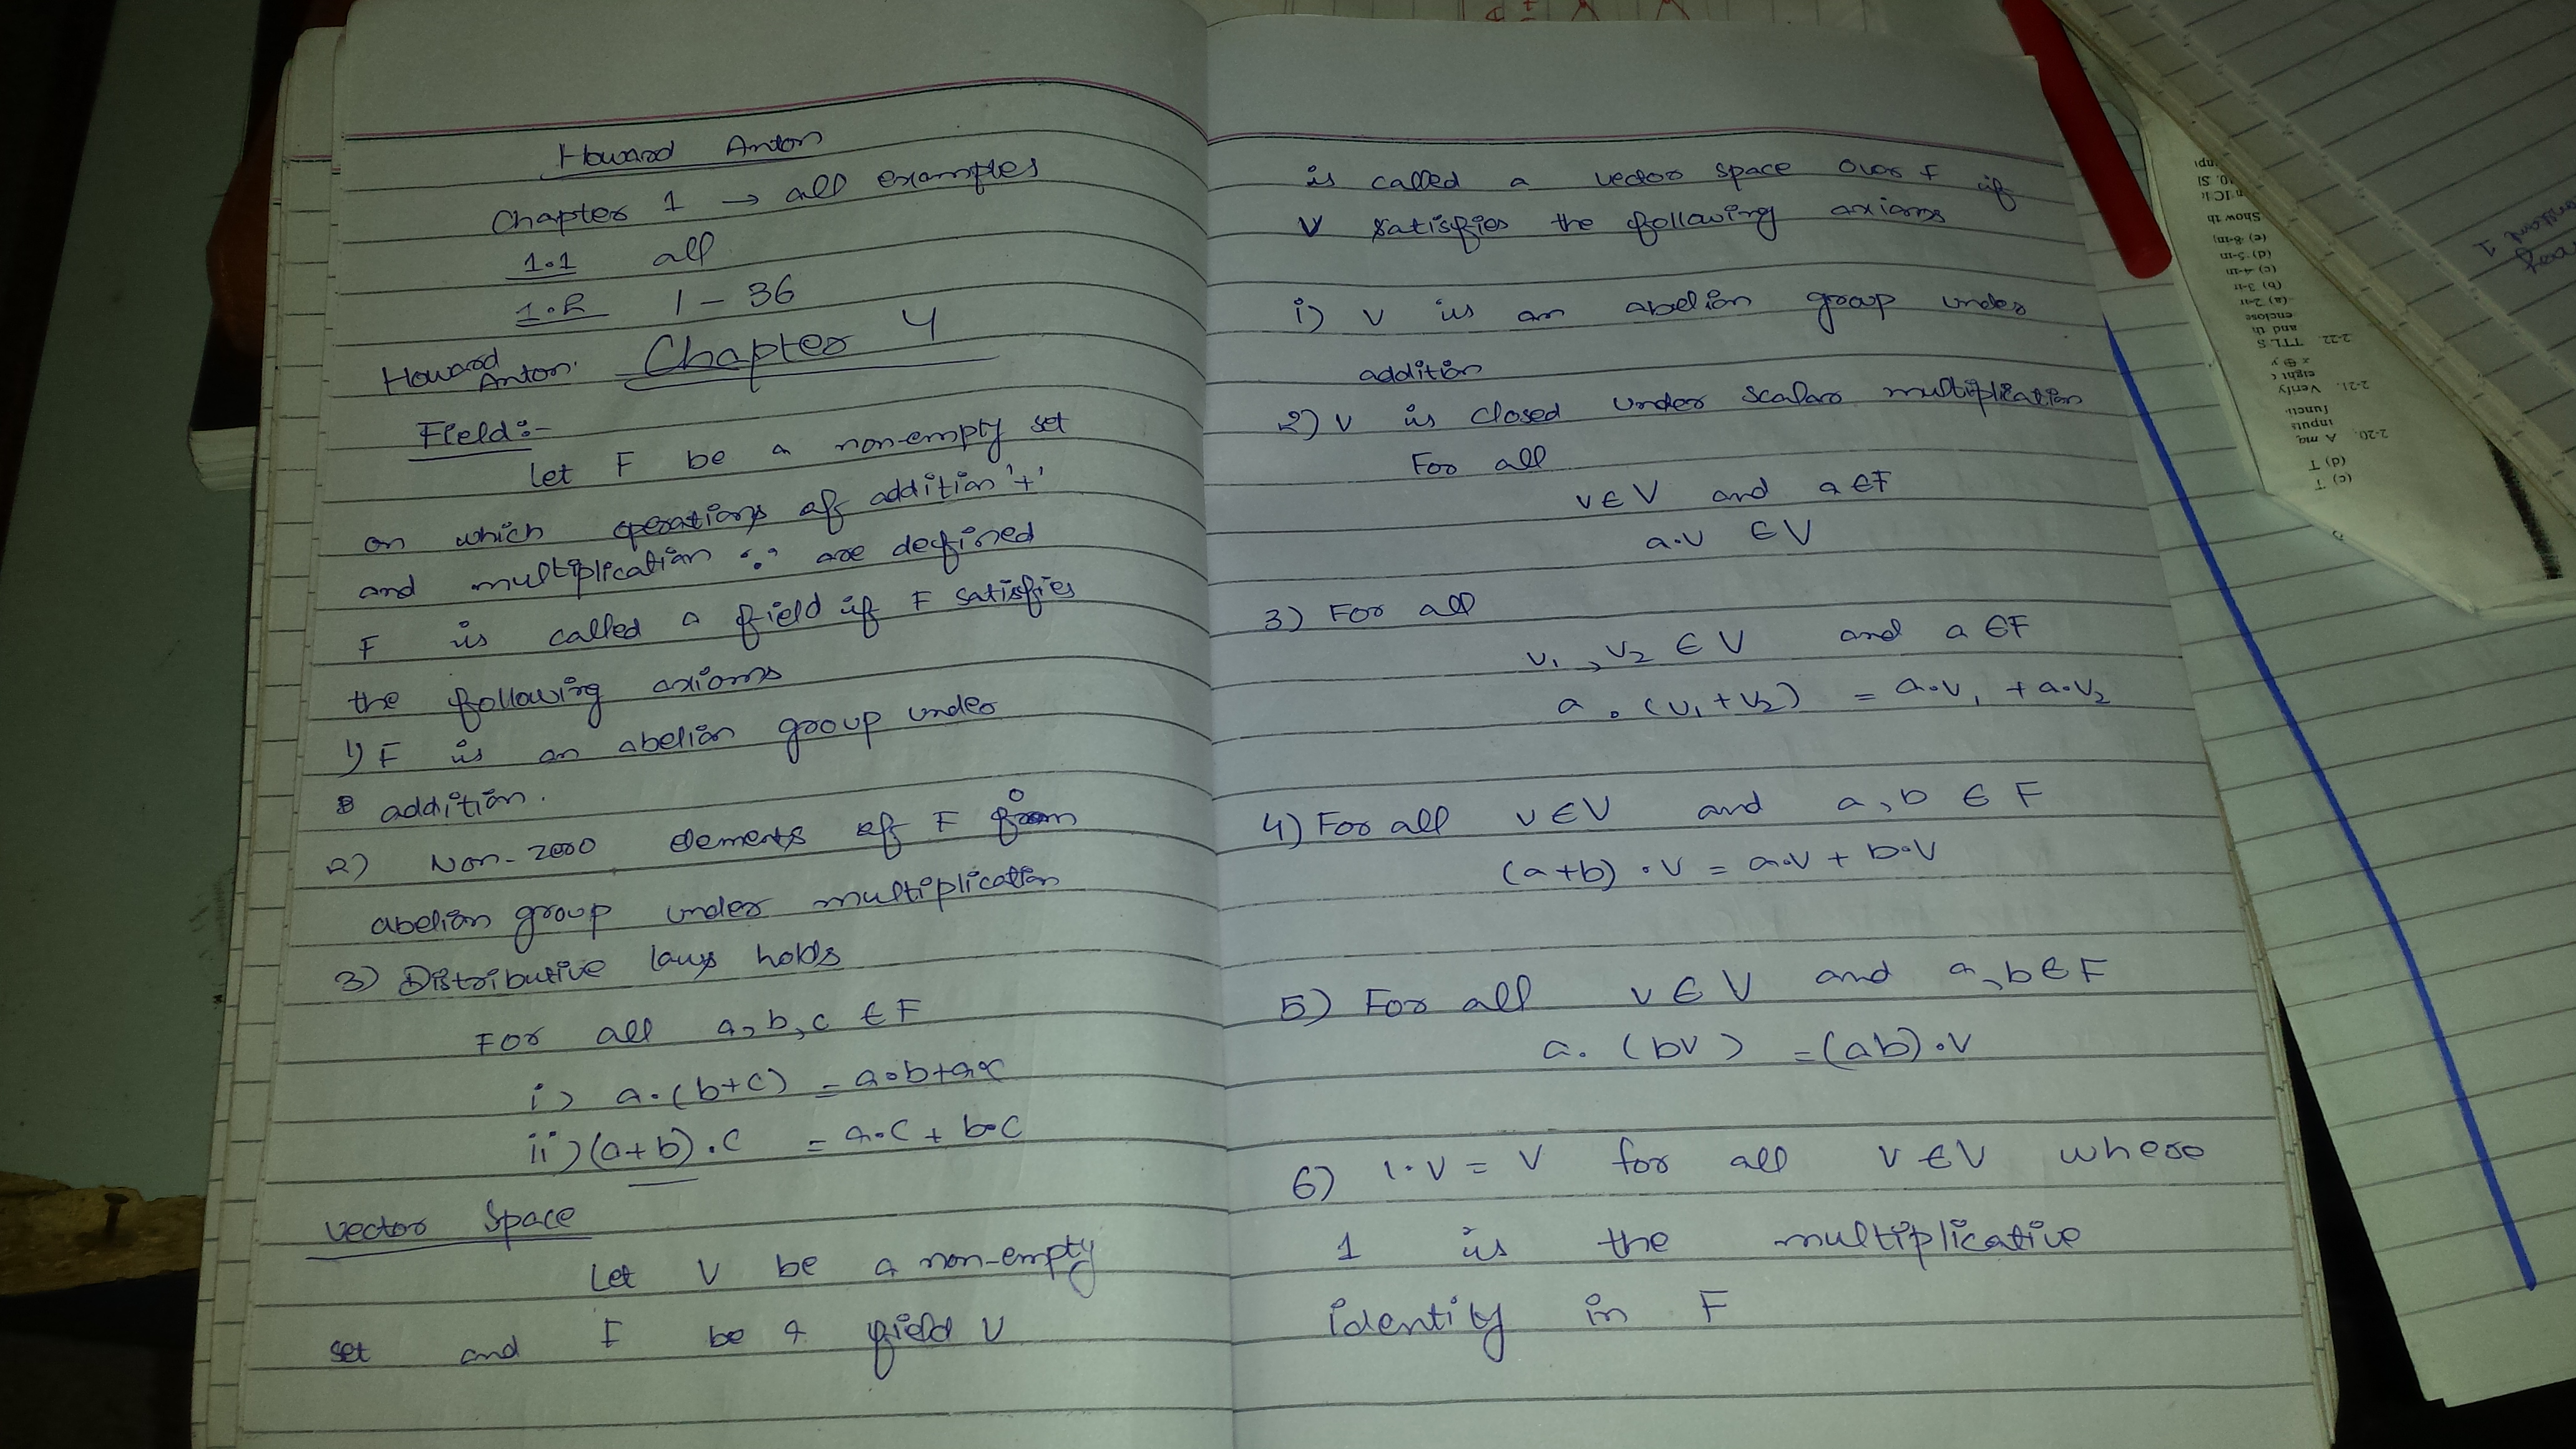 Howard Anton
Chapter 1 → all examples
1.1 all
1.2 1 - 36
Howard Anton. Chapter 4
Field:-
let F be a non-empty set
on which operations of addition '+'
and multiplication '.' are defined
F is called a field if F satisfies
the following axioms
1) F is an abelian group under
addition.
2) Non-zero elements of F from
abelian group under multiplication
3) Distributive laws holds
For all a, b, c ∈ F
i) a.(b+c) = a.b+a.c
ii) (a+b).c = a.c + b.c
vector Space
Let V be a non-empty
set and F be a field V
is called a vector space over F if
V satisfies the following axioms
i) V is an abelian group under
addition
2) V is closed under scalar multiplication
For all
v ∈ V and a ∈ F
a.v ∈ V
3) For all
v₁, v₂ ∈ V and a ∈ F
a . (v₁+v₂) = a.v₁ + a.v₂
4) For all v ∈ V and a, b ∈ F
(a+b) . v = a.v + b.v
5) For all v ∈ V and a, b ∈ F
a. (bv) = (ab).v
6) 1.v = v for all v ∈ V where
1 is the multiplicative
identity in F
2-22. TTL S
and th
enclose
(a) 2-in
(b) 3-in
(c) 4-in
(d) 5-in
(e) 8-in
Show th
2-21. Verify
eight
x ⊕ y
2-20. A maj
inputs
functi
(c) T
(d) T